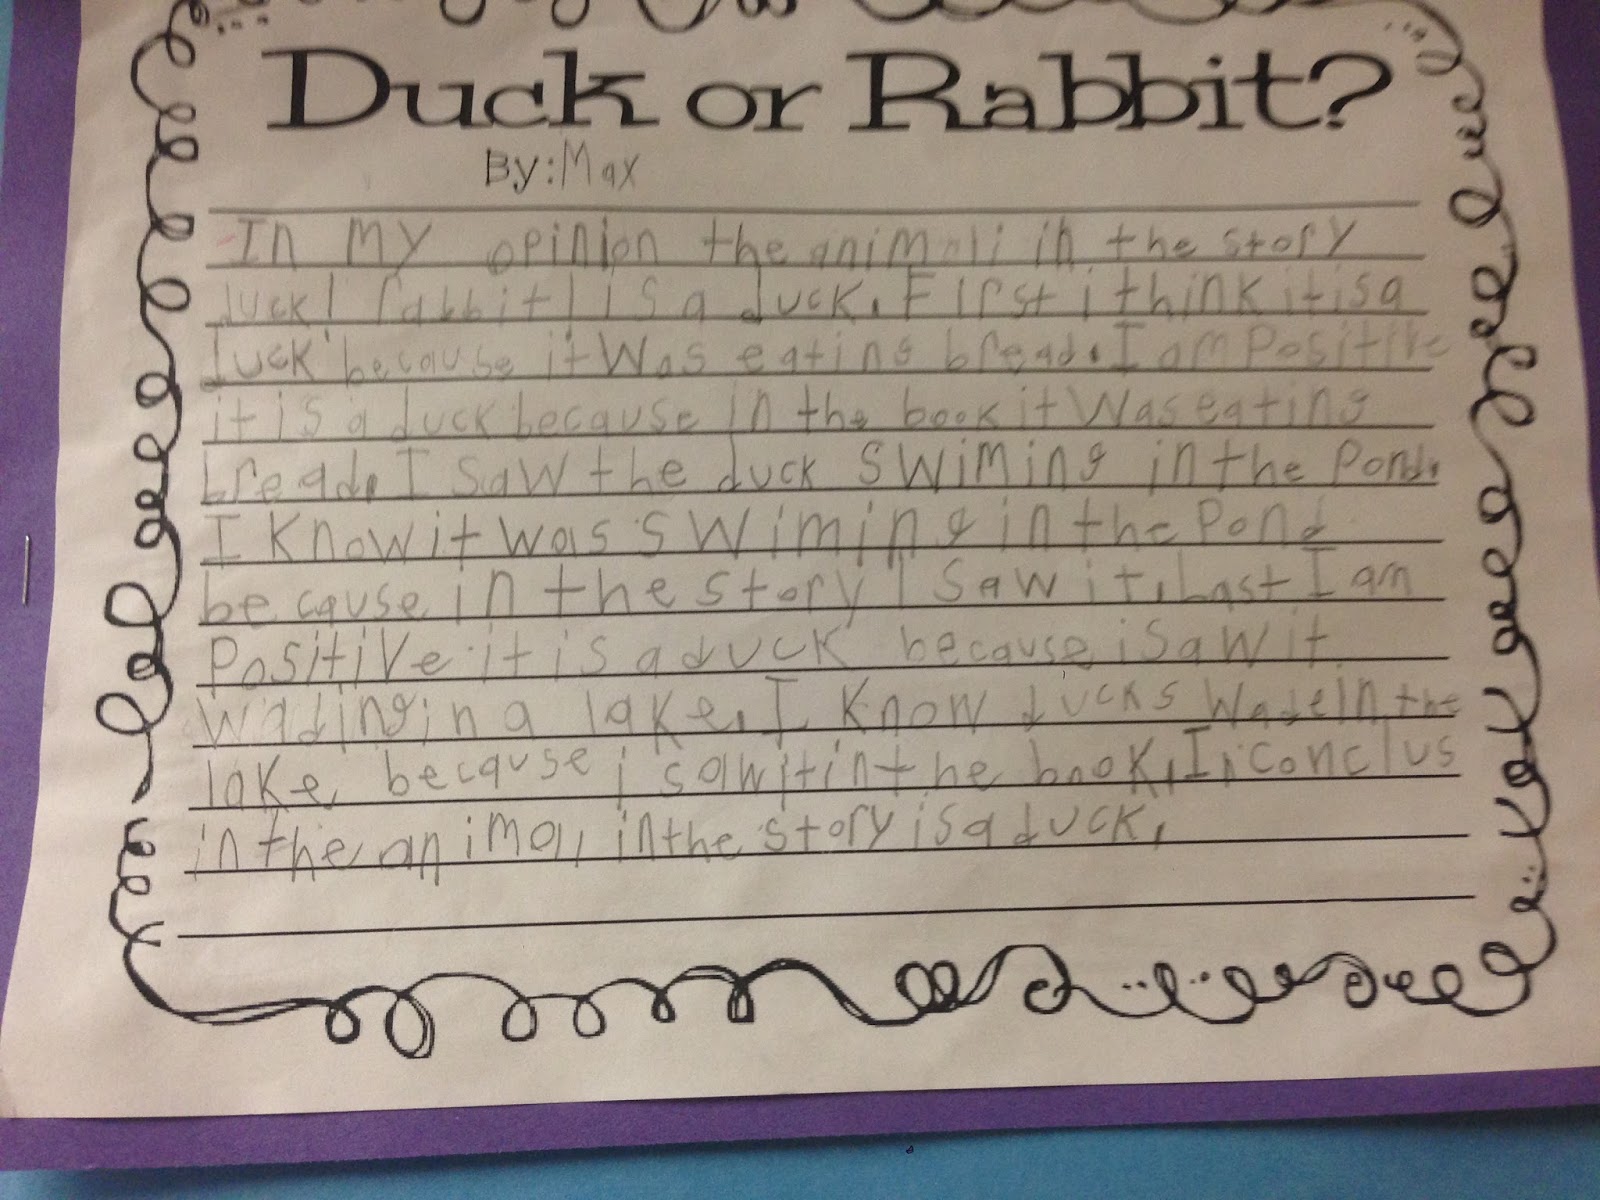 Duck or Rabbit?
By: Max
In my opinion the animal in the story
duck! rabbit! is a duck. First i think it is a
duck because it was eating bread. I am Positive
it is a duck because in the book it was eating
bread. I saw the duck swiming in the Pond.
I know it was swiming in the Pond
because in the story I saw it. Last I am
Positive it is a duck because i saw it
wading in a lake. I know ducks wade in the
lake because i saw it in the book. In conclus
in the animal in the story is a duck.